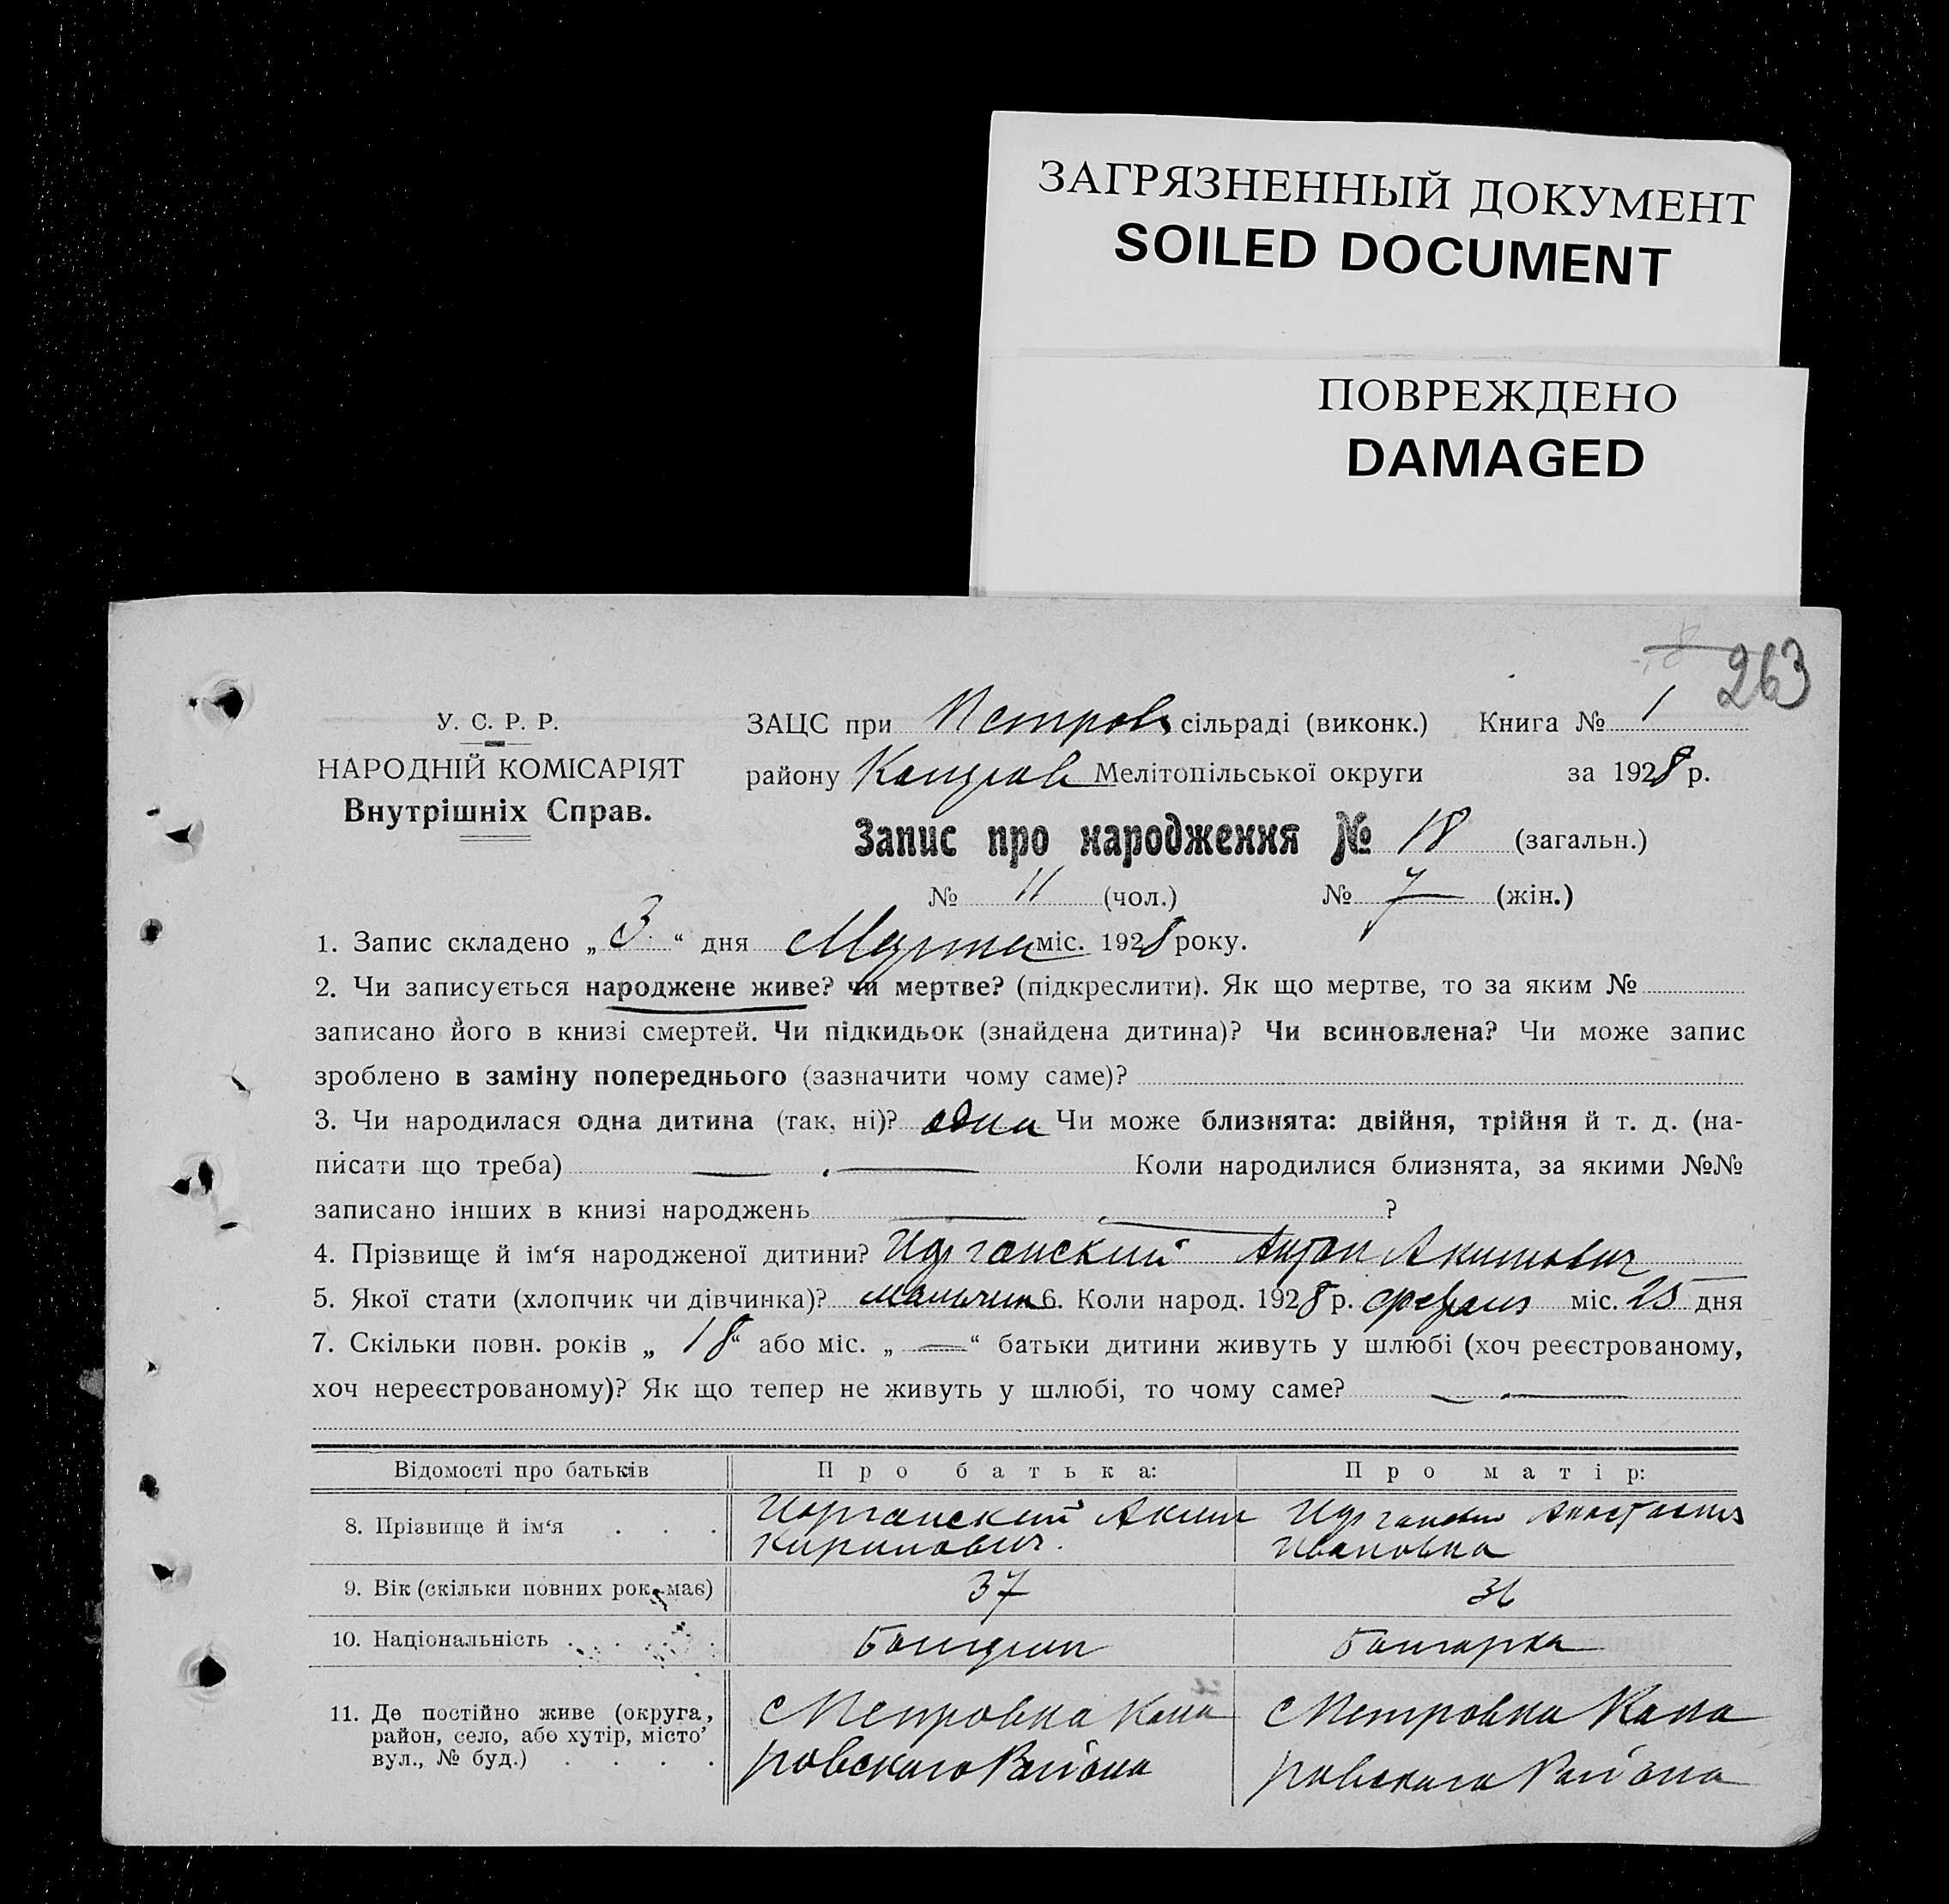 ЗАГРЯЗНЕННЫЙ ДОКУМЕНТ
SOILED DOCUMENT
ПОВРЕЖДЕНО
DAMAGED
263
У. С. Р. Р.
НАРОДНІЙ КОМІСАРІЯТ
Внутрішніх Справ.
ЗАЦС при Петров сільраді (виконк.) Книга № 1
району Мелітопільської округи за 1928 р.
Запис про народження № 18 (загальн.)
№ 11 (чол.) № 7 (жін.)
1. Запис складено „ 3 “ дня Марта міс. 1928 року.
2. Чи записується народжене живе? чи мертве? (підкреслити). Як що мертве, то за яким №
записано його в книзі смертей. Чи підкидьок (знайдена дитина)? Чи всиновлена? Чи може запис
зроблено в заміну попереднього (зазначити чому саме)?
3. Чи народилася одна дитина (так, ні)? одна Чи може близнята: двійня, трійня й т. д. (на-
писати що треба) — — Коли народилися близнята, за якими №№
записано інших в книзі народжень — — ?
4. Прізвище й ім‘я народженої дитини? Антон Акимович
5. Якої стати (хлопчик чи дівчинка)? мальчик 6. Коли народ. 1928 р. міс. 25 дня
7. Скільки повн. років „ 18 “ або міс. „ — “ батьки дитини живуть у шлюбі (хоч реєстрованому,
хоч нереєстрованому)? Як що тепер не живуть у шлюбі, то чому саме? — —
Відомості про батьків Про батька: Про матір:
8. Прізвище й ім‘я . . . Аким Анастасия
Ивановна
9. Вік (скільки повних рок. має) 37 36
10. Національність . . . . Болгарка
11. Де постійно живе (округа, район, село, або хутір, місто’ вул., № буд.) . . . .
с Петровка с Петровка
ровского Района ровского Района